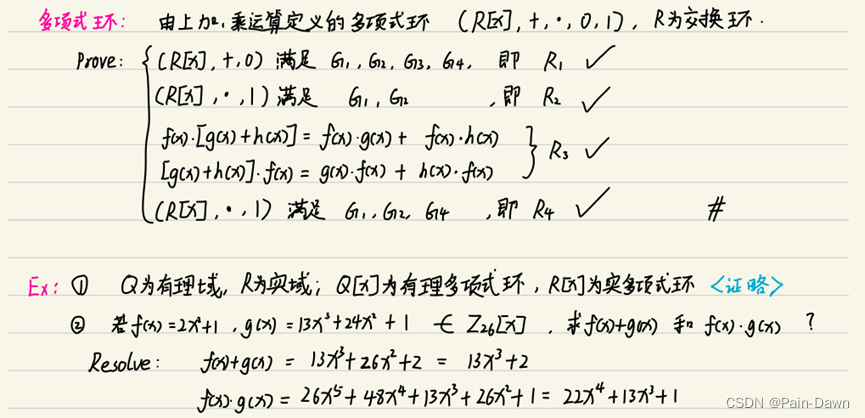 多项式环: 由上加、乘运算定义的多项式环 (R[x], +, ·, 0, 1), R为交换环.
Prove: { (R[x], +, 0) 满足 G₁, G₂, G₃, G₄, 即 R₁ ✓
(R[x], ·, 1) 满足 G₁, G₂ , 即 R₂ ✓
f(x)·[g(x)+h(x)] = f(x)·g(x) + f(x)·h(x)
[g(x)+h(x)]·f(x) = g(x)·f(x) + h(x)·f(x) } R₃ ✓
(R[x], ·, 1) 满足 G₁, G₂, G₄ , 即 R₄ ✓ #
Ex: ① Q为有理域, R为实域; Q[x]为有理多项式环, R[x]为实多项式环 <证略>
② 若f(x)=2x²+1, g(x)=13x³+24x²+1 ∈ Z₂₆[x], 求f(x)+g(x) 和 f(x)·g(x) ?
Resolve: f(x)+g(x) = 13x³+26x²+2 = 13x³+2
f(x)·g(x) = 26x⁵+48x⁴+13x³+26x²+1 = 22x⁴+13x³+1
CSDN @Pain-Dawn